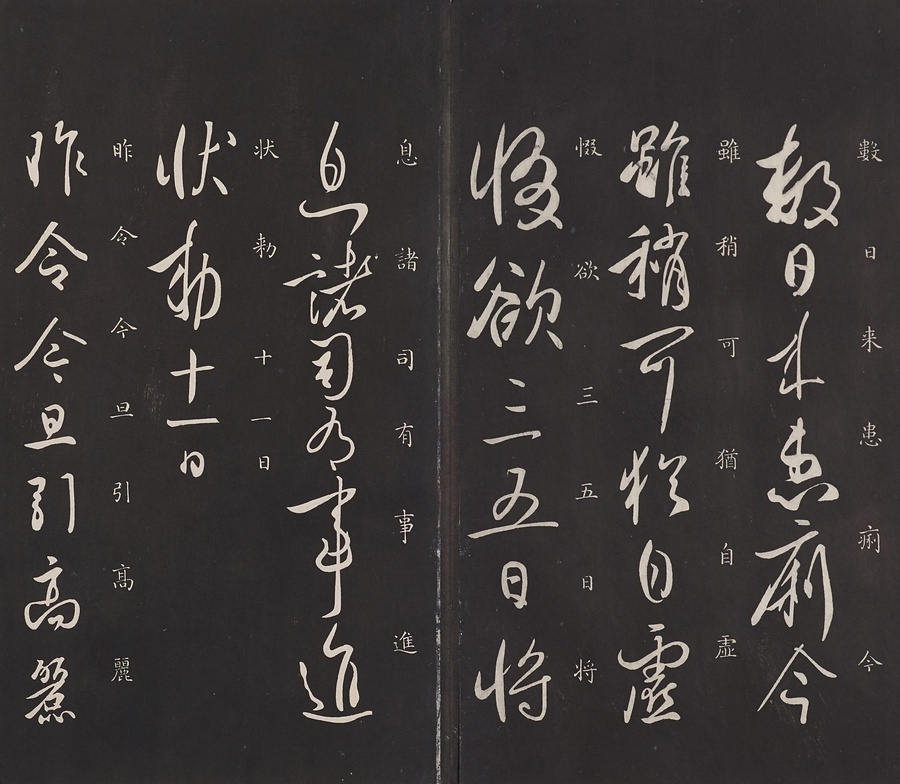 數日来患痢今
數日来患痢今
雖稍可猶自虛
雖稍可猶自虛
惙欲三五日将
惙欲三五日将
息諸司有事進
息諸司有事進
状勑十一日
状勑十一日
昨令今旦引高麗
昨令今旦引髙麗